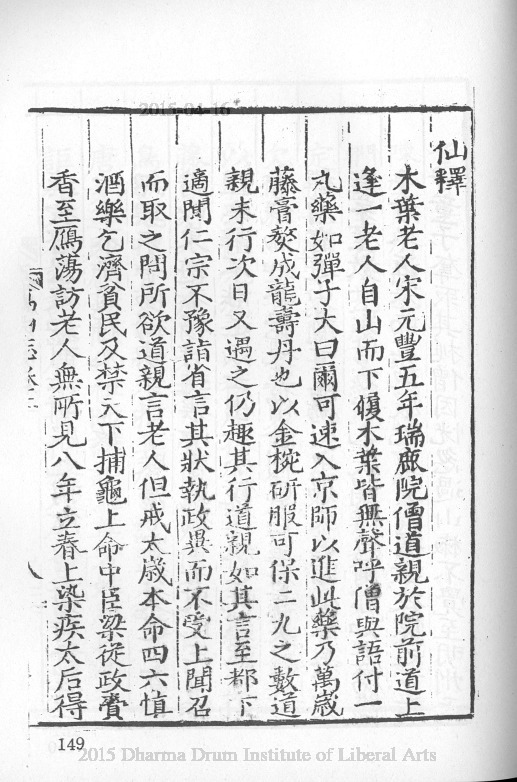 2015-04-16
仙釋
木葉老人宋元豐五年瑞鹿院僧道親於院前道上
逢一老人自山而下履木葉皆無聲呼僧與語付一
丸藥如彈子大曰爾可速入京師以進此藥乃萬歲
藤膏熬成龍壽丹也以金椀研服可保二九之數道
親未行次日又遇之仍趣其行道親如其言至都下
適聞仁宗不豫詣省言其狀執政異而不受上聞召
而取之問所欲道親言老人但戒太歲本命四六慎
酒樂乞濟貧民及禁天下捕龜上命中臣梁從政賫
香至鴈蕩訪老人無所見八年立春上染疾太后得
149
2015 Dharma Drum Institute of Liberal Arts